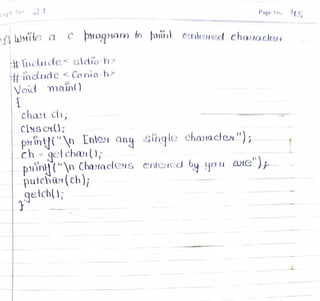 Page No. 45
Write a c program to print entered character
#include<stdio.h>
#include<conio.h>
Void main()
{
char ch;
clrscr();
printf("\n Enter any single character");
ch = getchar();
printf("\n Characters entered by you are");
putchar(ch);
getch();
}